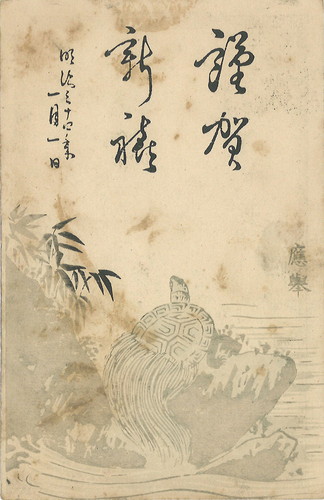 謹賀
新禧
明治三十四年
一月一日
應舉